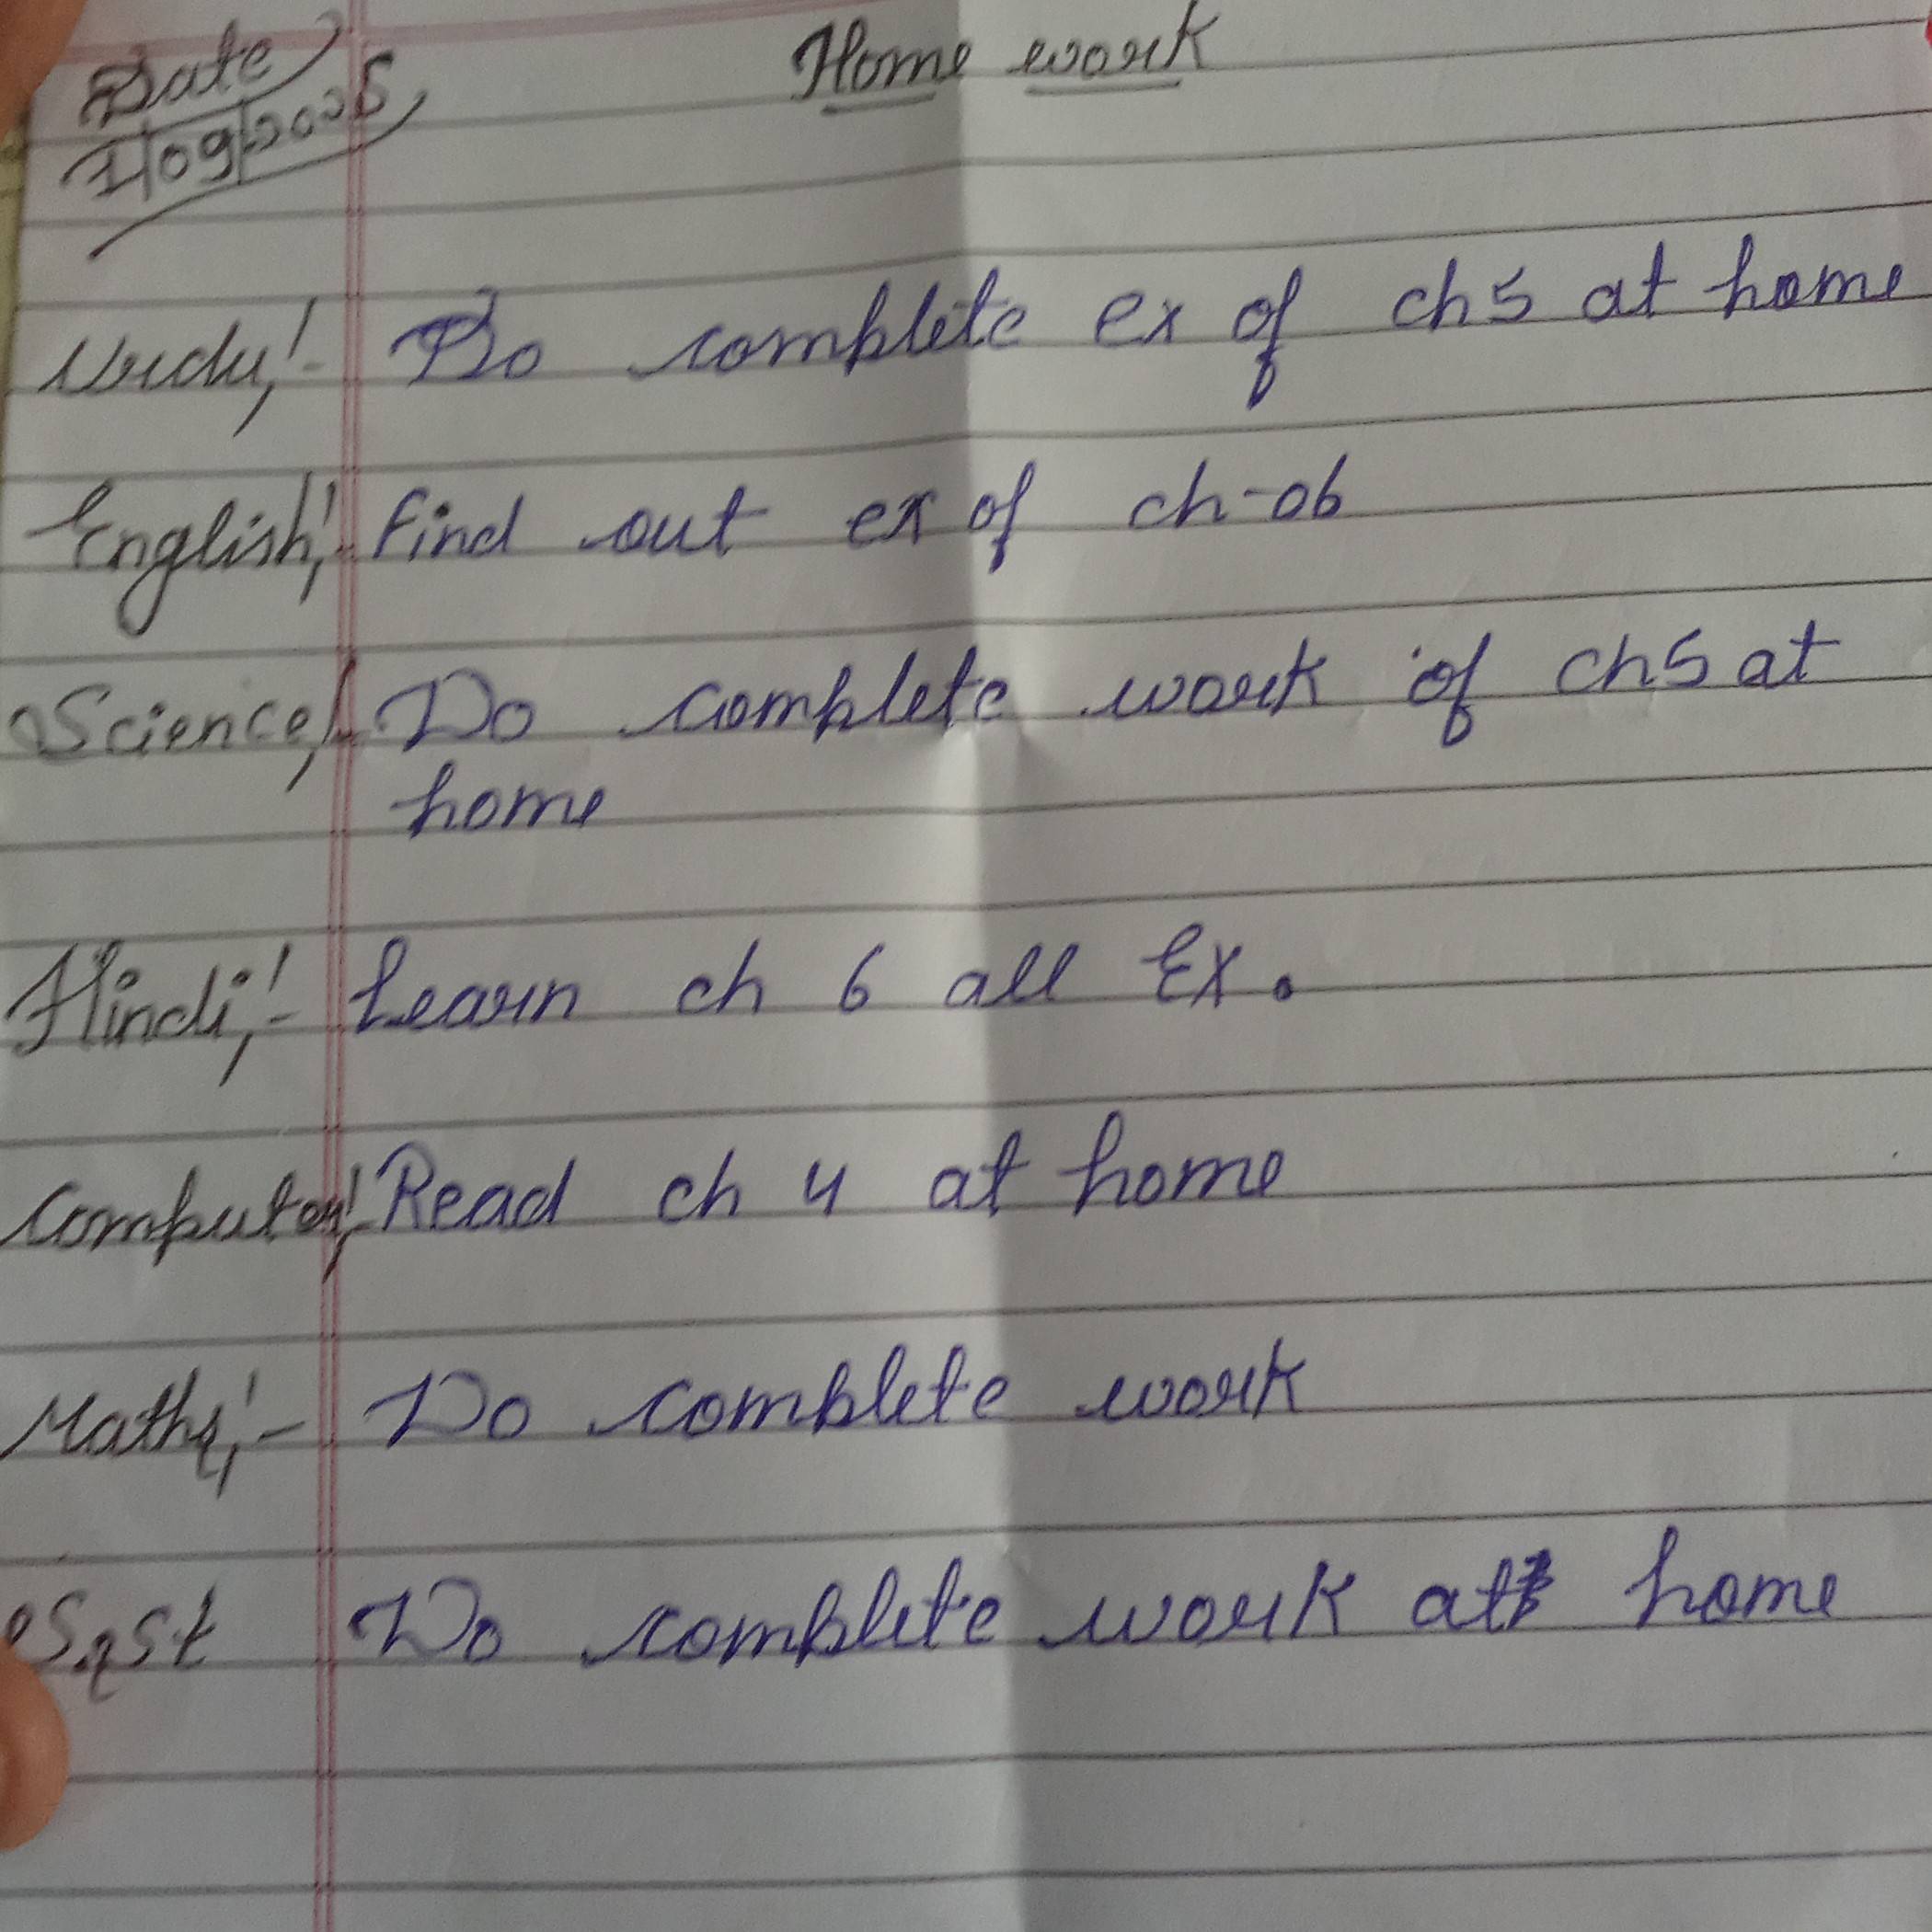 Date
1/09/2025
Home work
Urdu:- Do complete ex of ch 5 at home
English:- Find out ex of ch-06
Science:- Do complete work of ch 5 at
home
Hindi:- Learn ch 6 all Ex.
Computer:- Read ch 4 at home
Maths:- Do complete work
S.st Do complete work at home